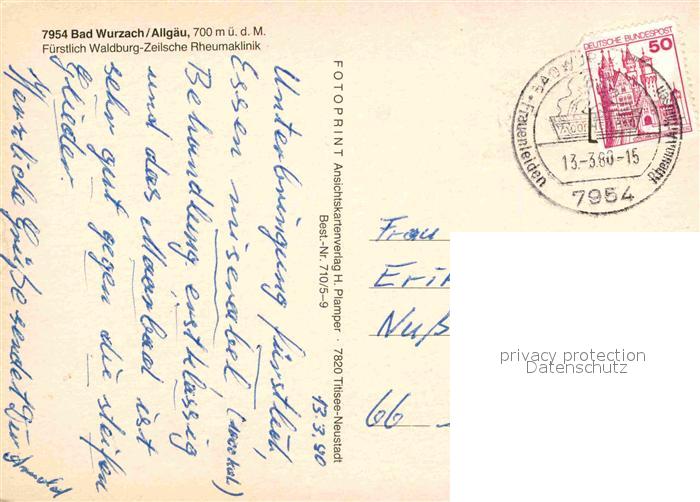 7954 Bad Wurzach/Allgäu, 700 m ü. d. M.
Fürstlich Waldburg-Zeilsche Rheumaklinik
13.3.80
Unterbringung fürstlich,
Essen miserabel (1000 kal.)
Behandlung erstklassig
und das Moorbad ist
sehr gut gegen die steifen
Glieder.
Herzliche Grüße sendet Dir
FOTOPRINT Ansichtskartenverlag H. Plamper · 7820 Titisee-Neustadt
Best.-Nr. 710/5-9
DEUTSCHE BUNDESPOST
50
Frauenleiden
13.-3.80-15
7954
Frau
Eri
Nuß
66
privacy protection
Datenschutz